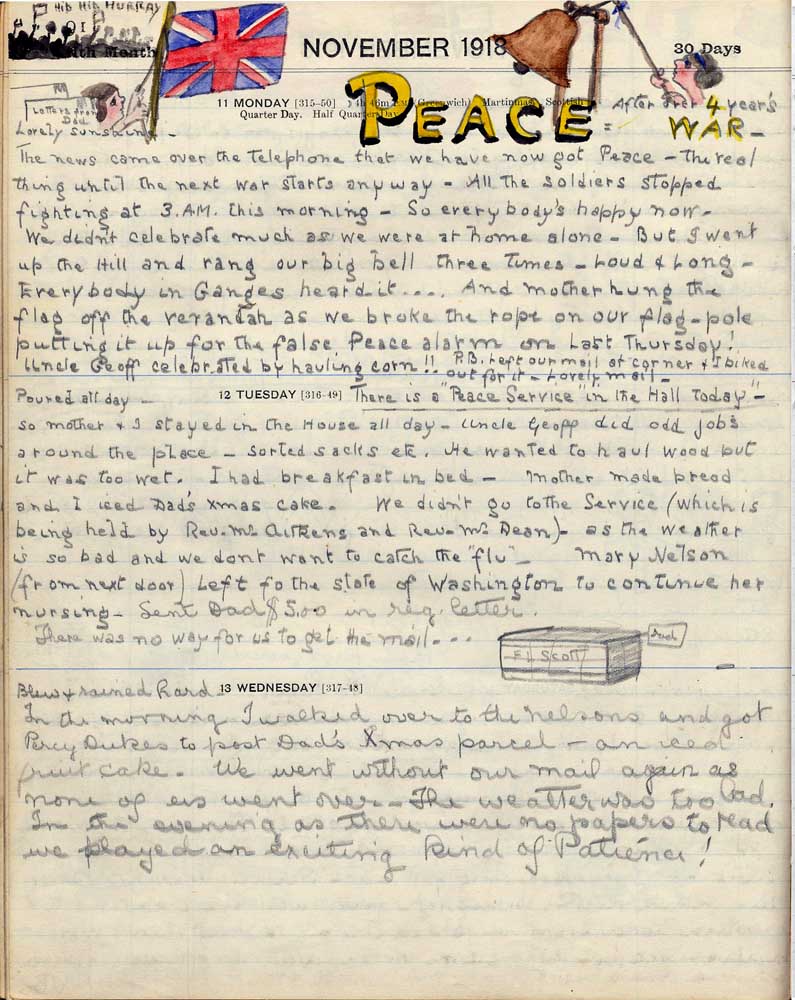 HIP HIP HURRAY
11th Month
NOVEMBER 1918
30 Days
Letters from Dad
11 MONDAY [315-50] 4h 46m P.M. (Greenwich) Martinmas, Scottish
Quarter Day. Half Quarter Day
PEACE = After over 4 year's
WAR -
Lovely sunshine -
The news came over the Telephone that we have now got Peace - the real
thing until the next war starts anyway - All the soldiers stopped
fighting at 3.A.M. this morning - So everybody's happy now -
We didn't celebrate much as we were at home alone - But I went
up the Hill and rang our big bell three times - Loud & Long -
Everybody in Ganges heard it .... And mother hung the
flag off the verandah as we broke the rope on our flag-pole
putting it up for the false Peace alarm on Last Thursday!
Uncle Geoff celebrated by hauling corn!! P.B. kept our mail at corner & I biked
out for it - Lovely mail -
Poured all day - 12 TUESDAY [316-49] There is a "Peace Service" in the Hall Today" -
so mother & I stayed in the House all day - Uncle Geoff did odd jobs
around the place - sorted sacks etc. He wanted to haul wood but
it was too wet. I had breakfast in bed - Mother made bread
and I iced Dad's xmas cake. We didn't go to the Service (which is
being held by Rev. Mr Aitkens and Rev. Mr Dean) - as the weather
is so bad and we dont want to catch the "flu" - Mary Nelson
(from next door) Left fo the state of Washington to continue her
nursing - Sent Dad $5.00 in reg. letter.
There was no way for us to get the mail - - -
F.H. SCOTT
Blew & rained hard 13 WEDNESDAY [317-48]
In the morning I walked over to the Nelsons and got
Percy Dukes to post Dad's Xmas parcel - an iced
fruit cake. We went without our mail again as
none of us went over - The weatter was too bad.
In the evening as there were no papers to read
we played an exciting kind of Patience!